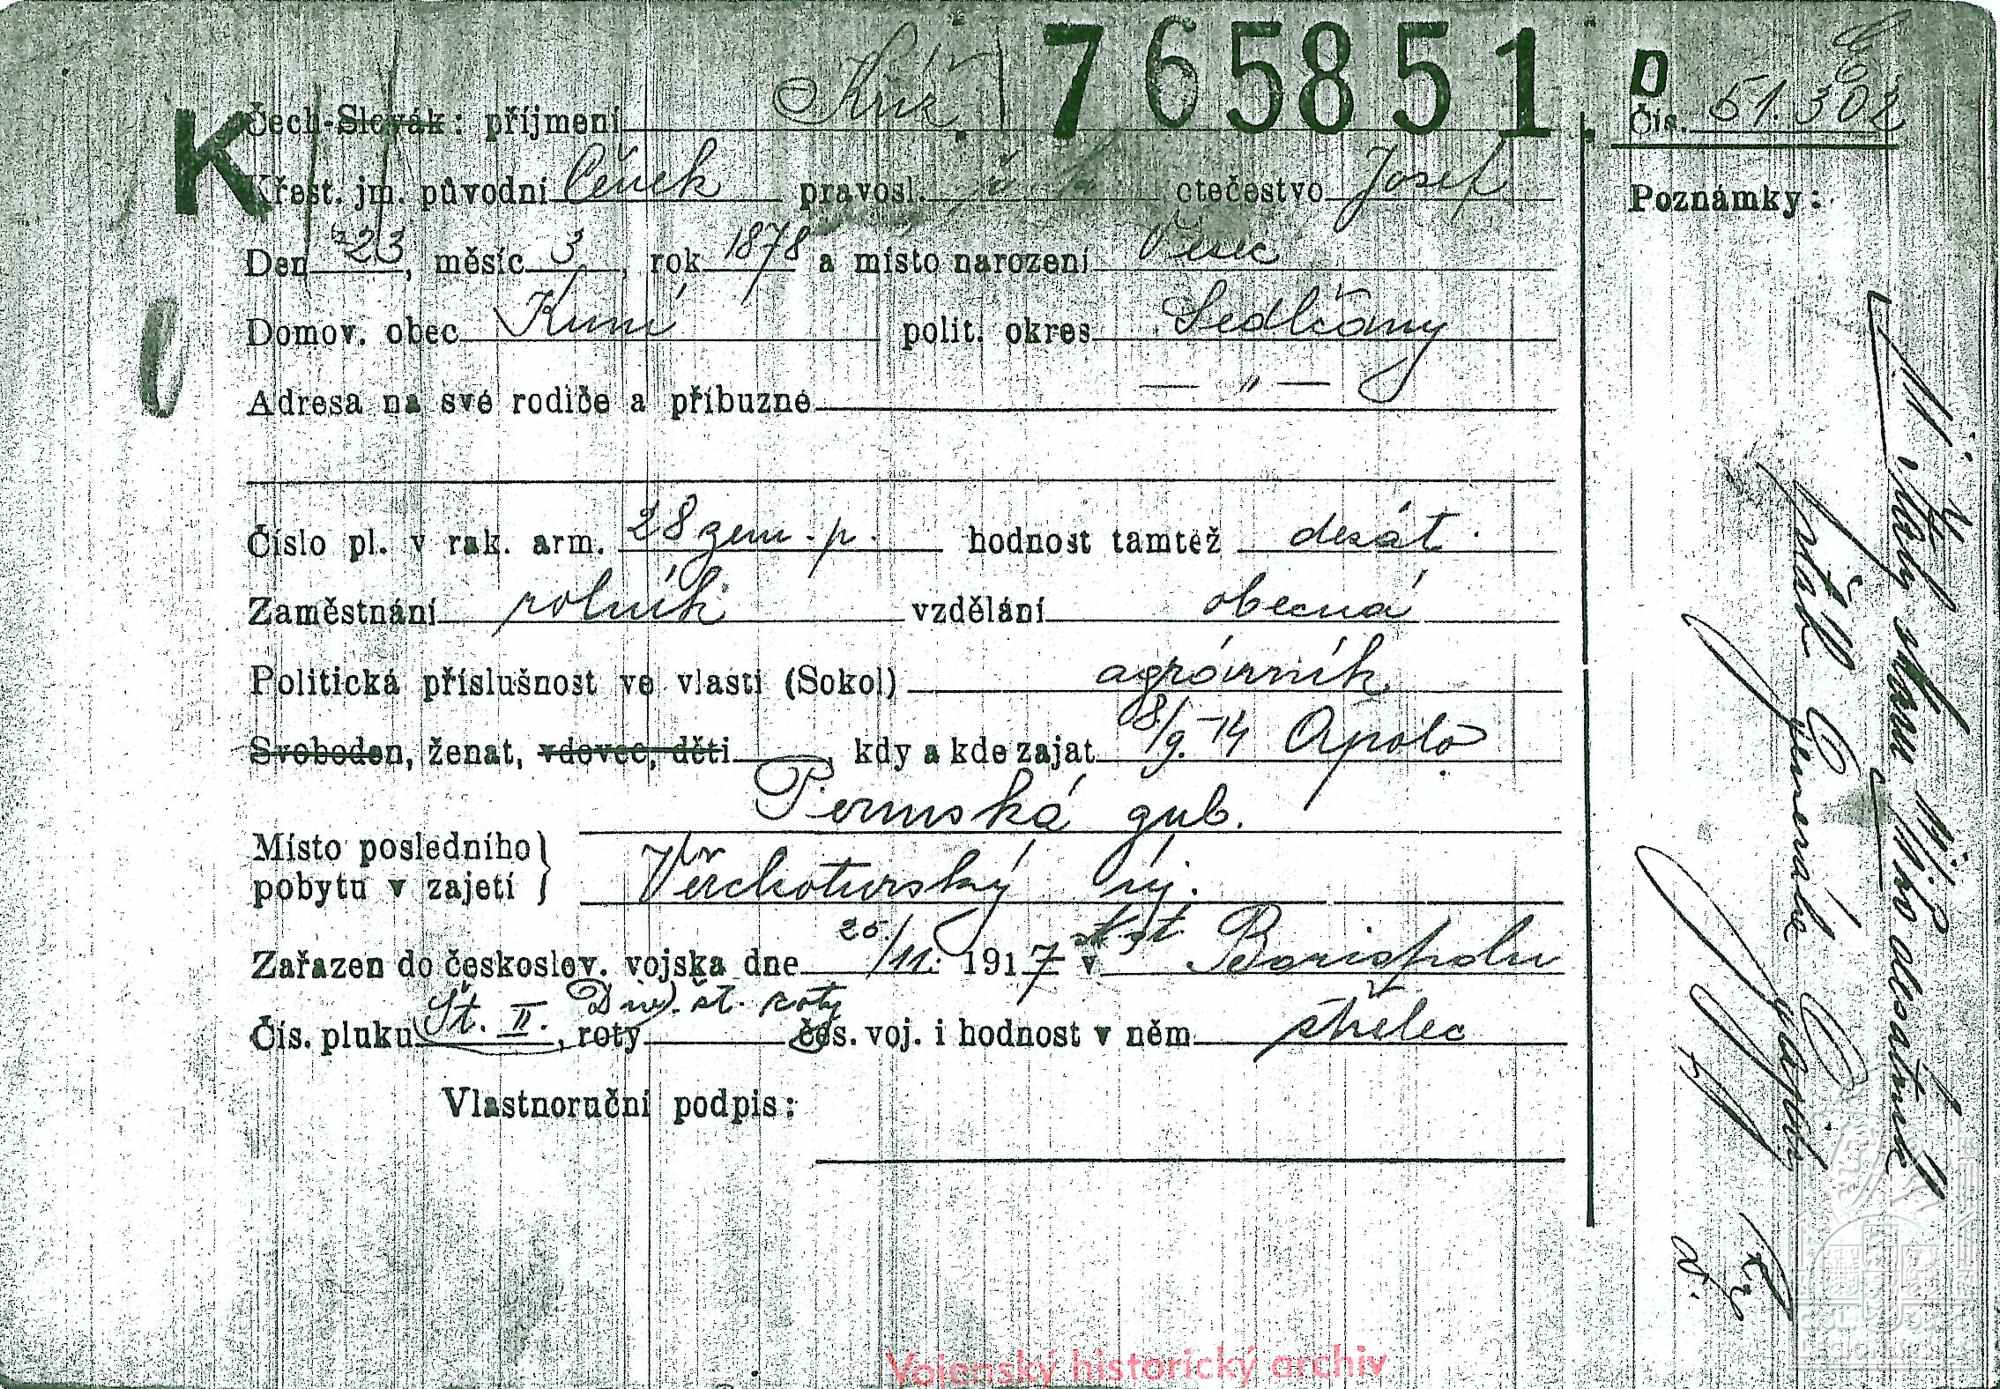 765851.
K D
Čech-Slovák: příjmení Kříž Čís. 51.302
Křest. jm. původní Čeněk pravosl. otečestvo Josef
Poznámky:
Den 23, měsíc 3, rok 1878 a místo narození Vesec
Domov. obec Kuní polit. okres Sedlčany
Adresa na své rodiče a příbuzné — „ —
Číslo pl. v rak. arm. 28 zem. p. hodnost tamtéž desát.
Zaměstnání rolník vzdělání obecná
Politická příslušnost ve vlasti (Sokol) agrárník
Svoboden, ženat, vdovec, děti, kdy a kde zajat 8/9. 14 Opolo
Permská gub.
Místo posledního
pobytu v zajetí } Verchoturský új.
Zařazen do českoslov. vojska dne 25/11. 1917 v Borispolu
Čís. pluku Št. II. Div. št. roty, roty čes. voj. i hodnost v něm střelec
Vlastnoruční podpis:
Vojenský historický archiv